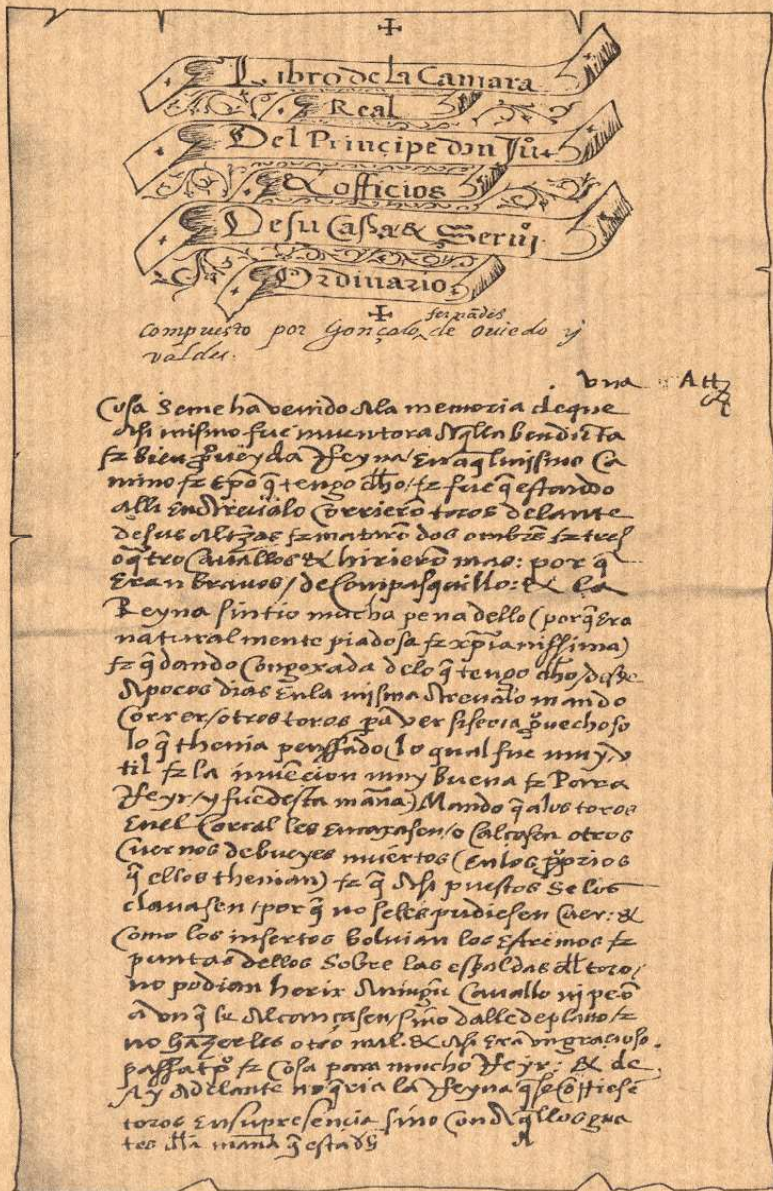 Libro de la Camara
Real
Del Prinçipe don Juº
& officios
De su Cassa & Serui
Ordinario
fernãdes
compuesto por Gonçalo de ouiedo y
valdes.
vna
Cosa Se me ha venido A la memoria de que
Asi mismo fue inuentora Aq̃lla bendicta
& bien p̃uey da Reyna / En aq̃l mismo Ca
mino & tp̃o q̃ tengo dho / & fue q̃ estando
alli En Areualo Corrierõ toros delante
de sus Altezas & matarõ dos ombres & tres
o q̃tro Cauallos & hirierõ mas: por q̃
Eran brauos / de Compasquillo: & La
Reyna sintio mucha pena dello (porq̃ Era
naturalmente piadosa & xp̃ianissima)
& q̃dando Congoxada de lo q̃ tengo dho / desde
A pocos dias En la misma Areualo mando
Correr / otros toros pã ver si seria p̃uechoso
lo q̃ thenia penssado (lo qual fue muy v
til & la inuẽcion muy buena & Para
Reyr / y fue desta mañã) Mando q̃ a los toros
En el Corral les Encaxasen / o Calcasen otros
Cuernos de bueyes muertos (En los p̃prios
q̃ ellos thenian) & q̃ Asi puestos Se los
clauasen / por q̃ no seles pudiesen Caer: &
Como los insertos boluian los Estremos &
puntas dellos Sobre las espaldas dl toro /
no podian herir A ningũ Cauallo ni peõ
a vn q̃ le Alcançasen / sino dalle de plano &
no hazerles otro mal. & Asi Era vn gracioso
passatp̃o & Cosa para mucho Reyr: & de
Ay Adelante no q̃ria la Reyna q̃ se Corriesẽ
toros En su presencia sino Con Aq̃llos gua
tes dla mañã q̃ esta dho